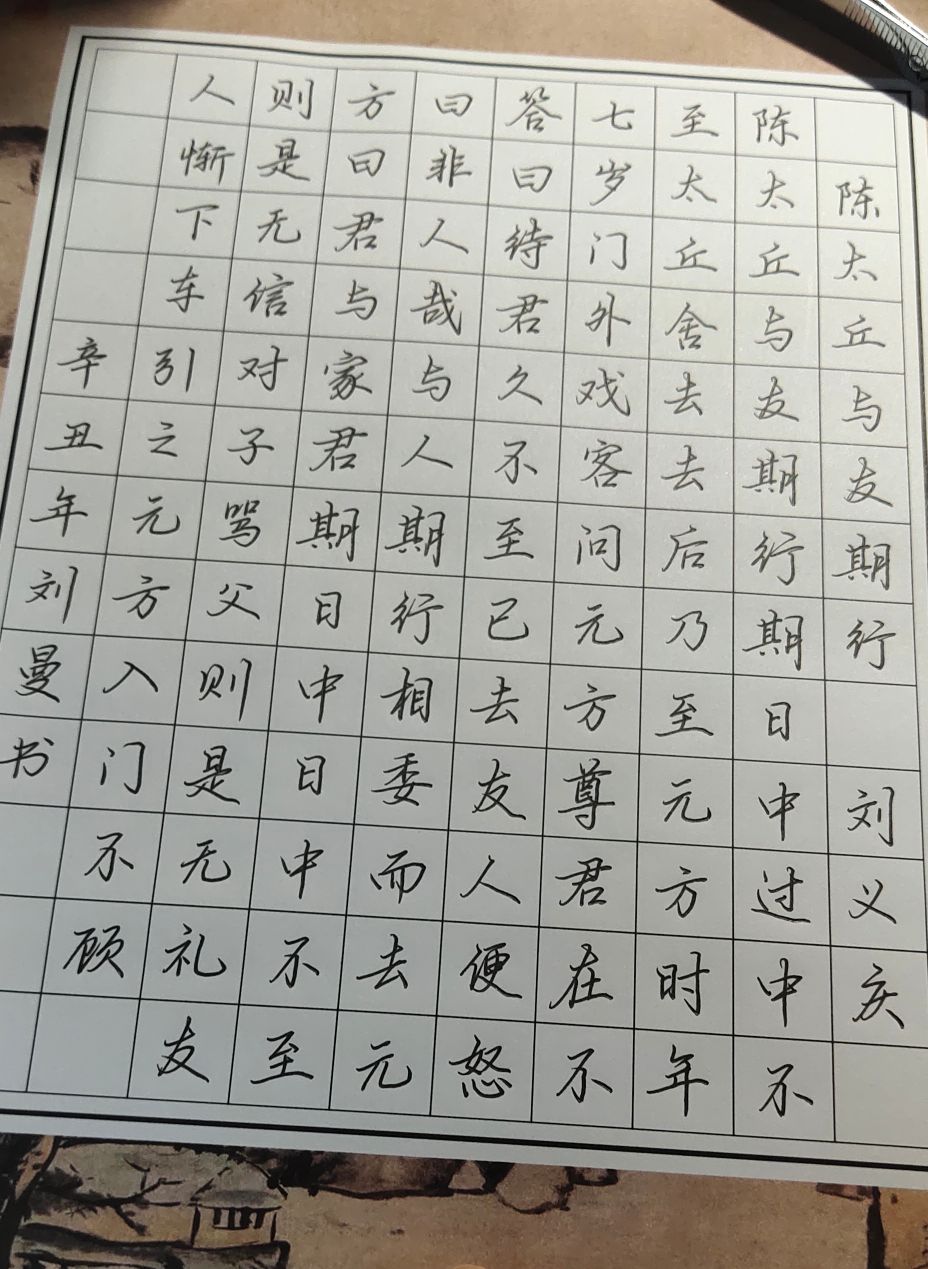 陈太丘与友期行 刘义庆
陈太丘与友期行期日中过中不
至太丘舍去去后乃至元方时年
七岁门外戏客问元方尊君在不
答曰待君久不至已去友人便怒
曰非人哉与人期行相委而去元
方曰君与家君期日中日中不至
则是无信对子骂父则是无礼友
人惭下车引之元方入门不顾
辛丑年刘曼书